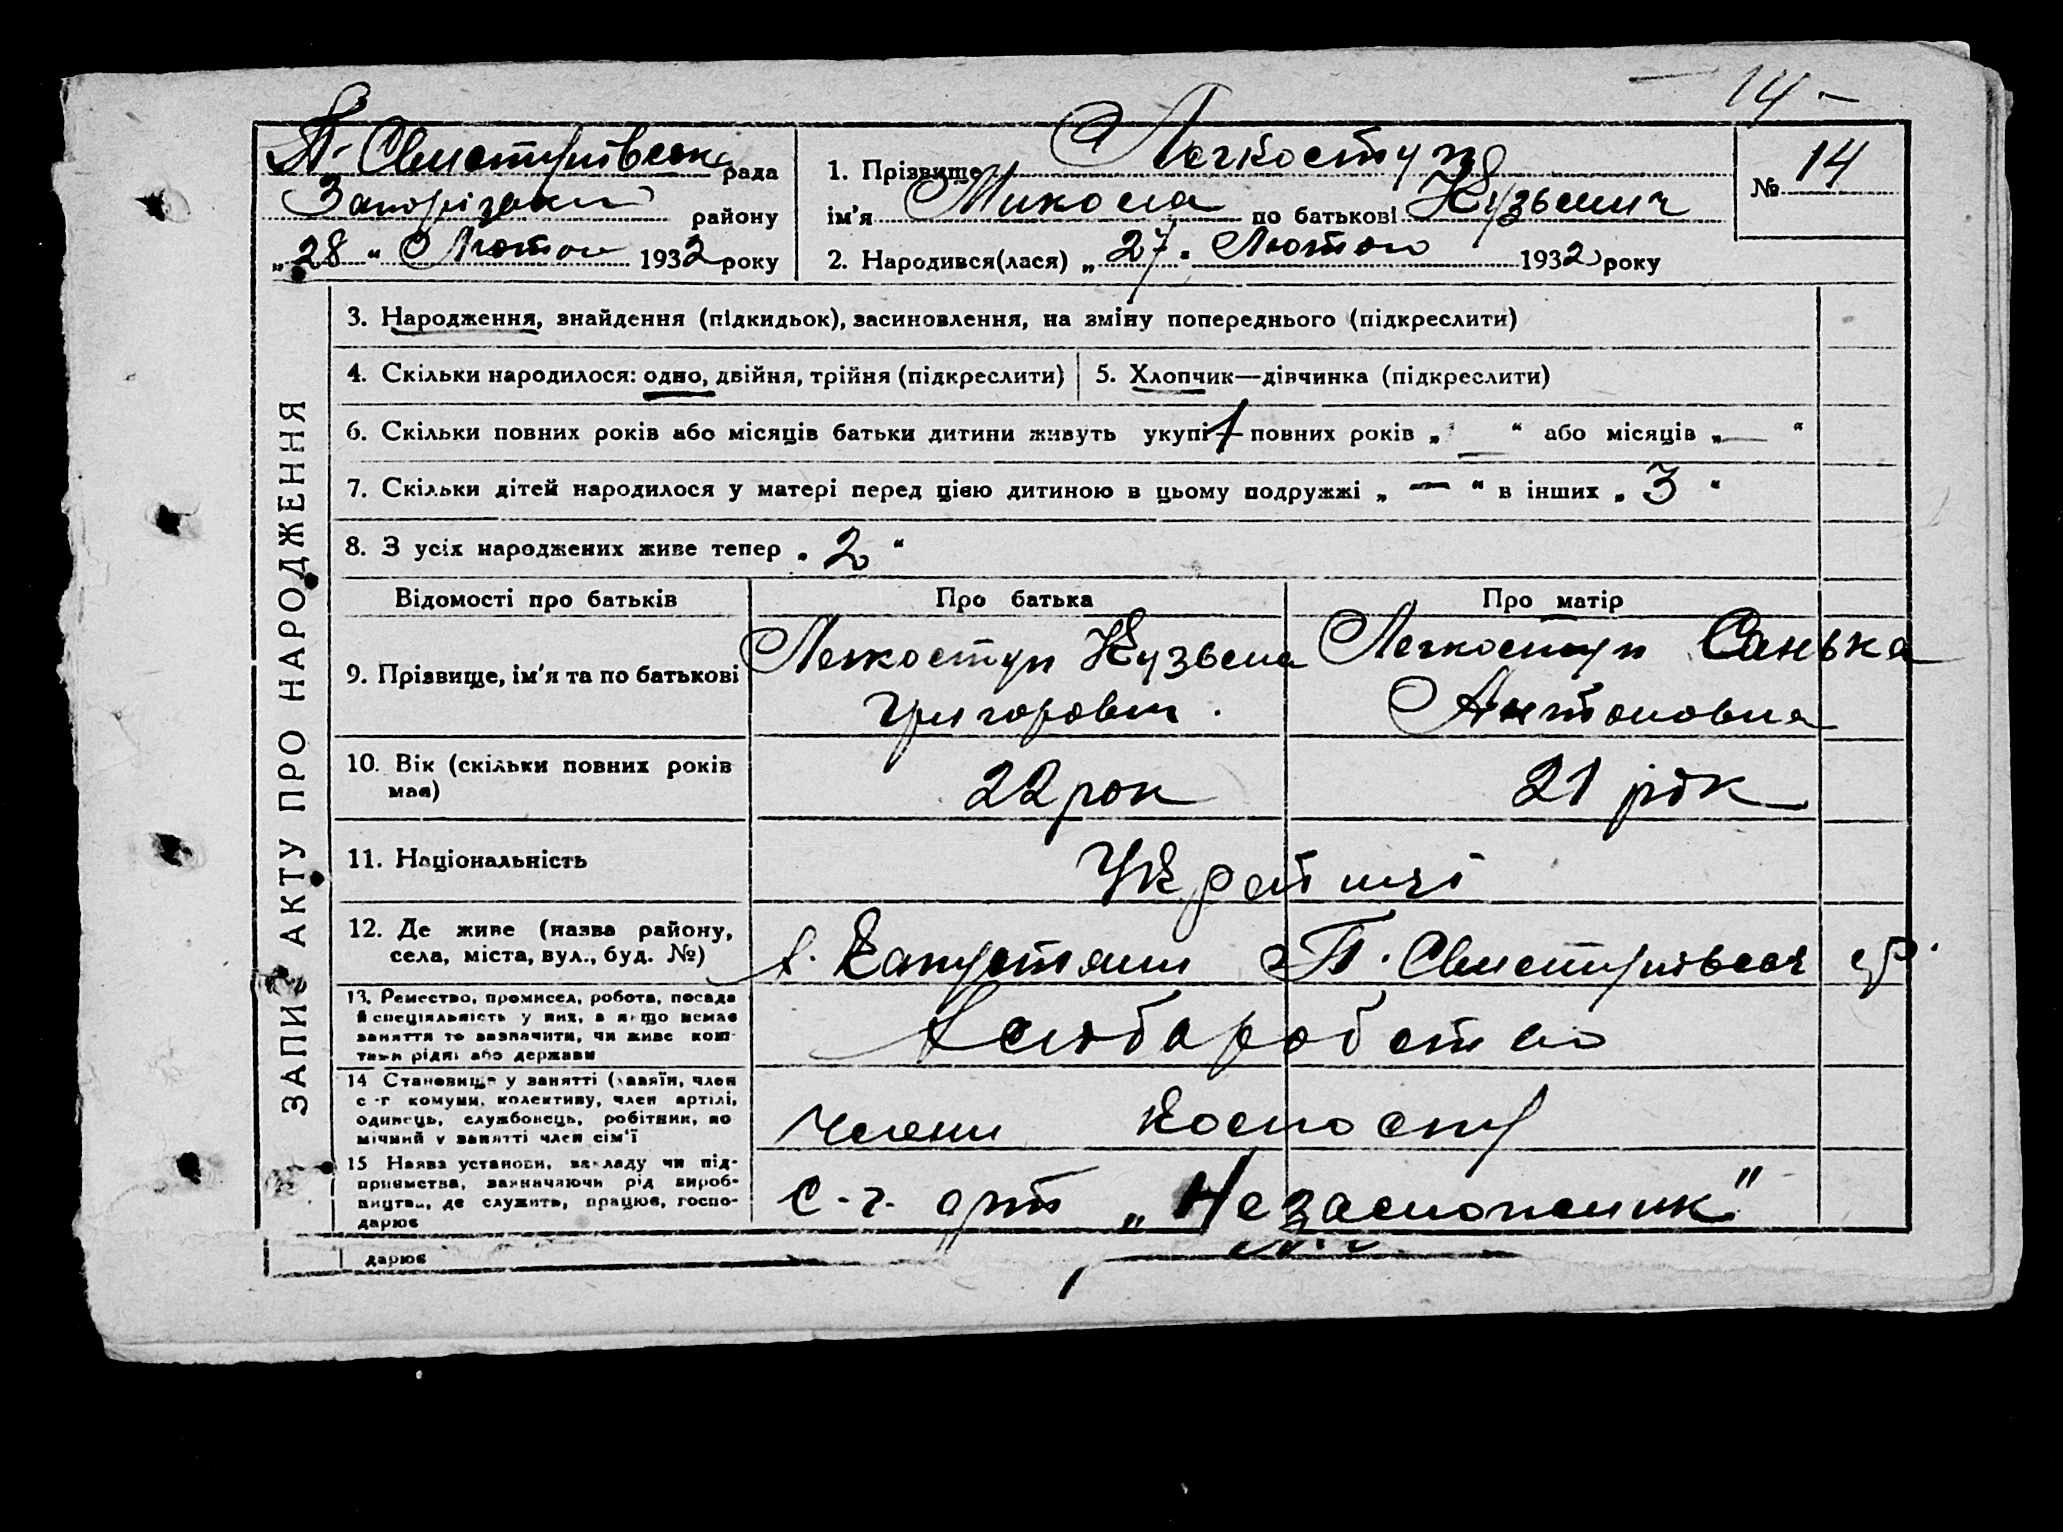 14 -
П-Свистунівська рада
Запорізький району
„28" Лютого 1932 року
1. Прізвище Легкоступ
ім'я Микола по батькові Кузьмич
2. Народився(лася) „27" Лютого 1932 року
№ 14
ЗАПИС АКТУ ПРО НАРОДЖЕННЯ
3. Народження, знайдення (підкидьок), засиновлення, на зміну попереднього (підкреслити)
4. Скільки народилося: одно, двійня, трійня (підкреслити) 5. Хлопчик—дівчинка (підкреслити)
6. Скільки повних років або місяців батьки дитини живуть укупі 1 повних років „—" або місяців „—"
7. Скільки дітей народилося у матері перед цією дитиною в цьому подружжі „—" в інших „3"
8. З усіх народжених живе тепер „2"
Відомості про батьків Про батька Про матір
9. Прізвище, ім'я та по батькові
Легкоступ Кузьма
Григорович.
Легкоступ Санька
Антоновна
10. Вік (скільки повних років
має)
22 рок
21 рік
11. Національність
Україінці
12. Де живе (назва району,
села, міста, вул., буд. №)
с. Капустяни П. Свистунівськ ср.
13. Ремество, промисел, робота, посада
й спеціяльність у них, а якщо немає
заняття то зазначити, чи живе кош-
тами рідні або держави
Хлібаробство
14 Становище у занятті (хазяїн, член
с.-г комуни, колективу, член артілі,
одинець, службовець, робітник, по
мічний у занятті член сім'ї
Члени колгоспу
15 Назва установи, закладу чи під-
приємства, зазначаючи рід вироб-
ництва, де служить, працює, госпо-
дарює
С-г. арт „Незаможник"
дарює